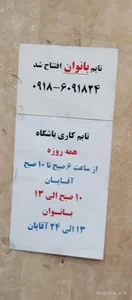 تایم بانوان افتتاح شد
۰۹۱۸-۶۰۹۱۸۲۴
تایم کاری باشگاه
همه روزه
از ساعت ۶ صبح تا ۱۰ صبح
آقایان
۱۰ صبح الی ۱۳
بانوان
۱۳ الی ۲۴ آقایان